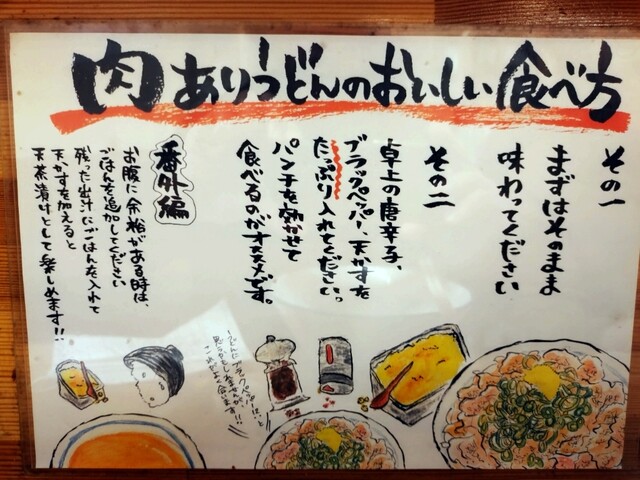 肉ありうどんのおいしい食べ方
その一
まずはそのまま
味わってください
その二
卓上の唐辛子、
ブラックペッパー、天かすを
たっぷり入れてください。
パンチを効かせて
食べるのがオススメです。
番外編
お腹に余裕がある時は、
ごはんを追加してください
残った出汁にごはんを入れて
天かすを加えると
天茶漬けとして楽しめます!!
うどんにブラックペッパー!?と
思うかもしれませんが、